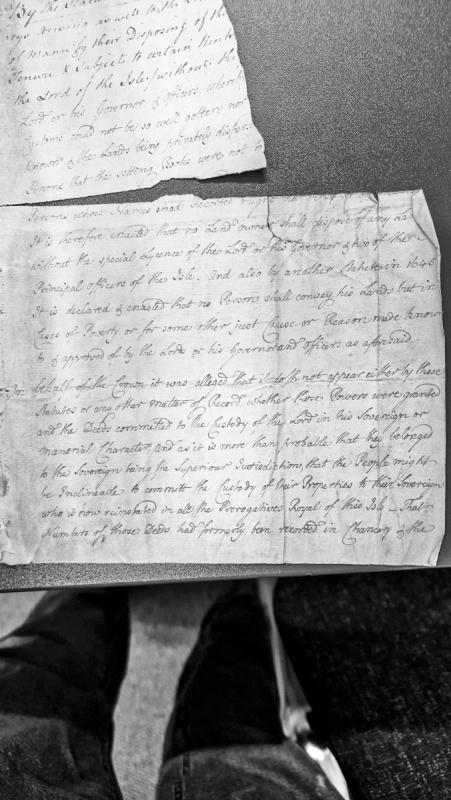 By the Statu
of Mann by their Disposing of th
Tenure & Subjects to certain Rents
the Lord of the Isle, without the
Lord or his Governor & officers, whereby
Customs could not be so well gotten nor
known & the Lands being privately dispos
Persons that the setting Books were not
Persons whose Names
It is therefore enacted that no Land owner shall dispose of any Lan
without the special Lycence of the Lord or his Governor & two of the
Principal officers of the Isle. And also by another Statute in 1645
It is declared & enacted that no Person shall convey his Lands but in
Cases of Poverty or for some other just Cause or Reason made known
to & approved of by the Lord or his Governor and officers as aforesaid.
behalf of the Crown it was alleged that it doth not appear either by these
Statutes or any other matter of Record whether those Powers were granted
and the Deeds committed to the Custody of the Lord in his Sovereign or
manerial Character, and as it is more than probable that they belonged
to the Sovereign being the Superiour Jurisdiction, that the People might
be Inclineable to committ the Custody of their Properties to their Sovereign
who is now reinstated in all the Prerogatives Royal of this Isle - That
Numbers of those Deeds had formerly been recorded in Chancery & the